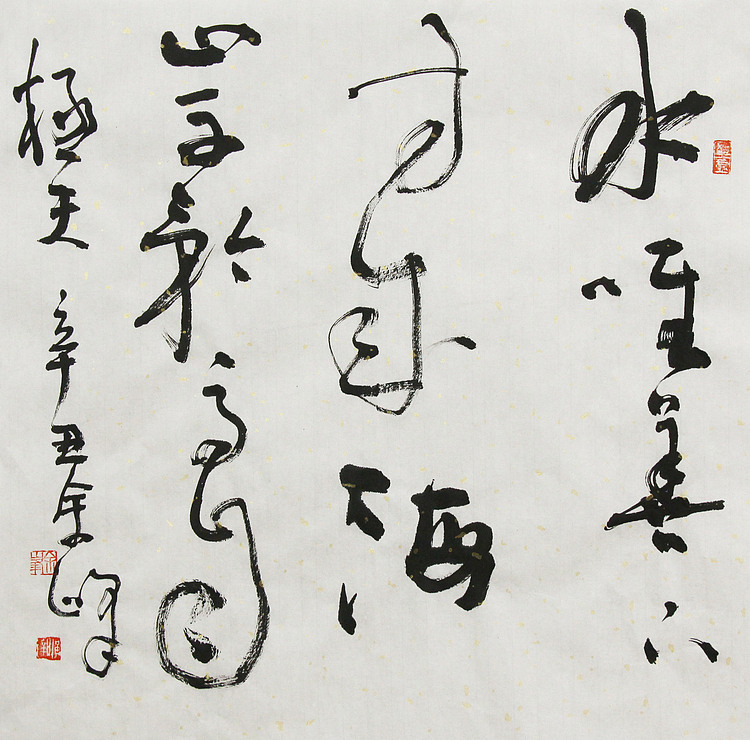 水唯善下
方成海
山不矜高自
極天 辛丑余峰